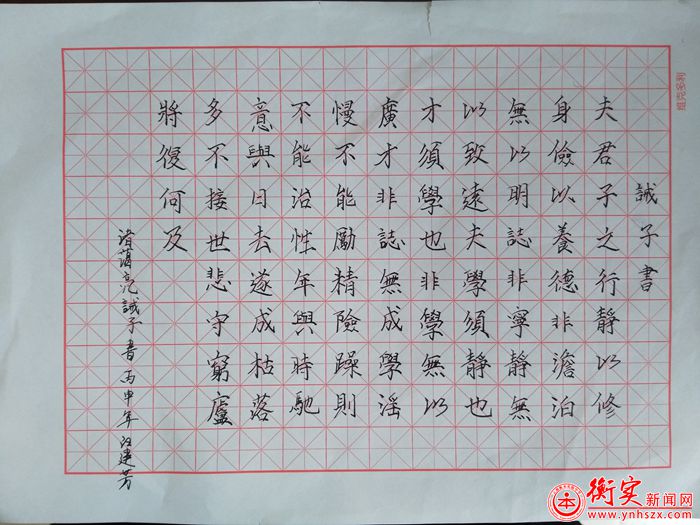 誡子書
夫君子之行靜以修
身儉以養德非澹泊
無以明誌非寧靜無
以致遠夫學須靜也
才須學也非學無以
廣才非誌無成學滛
慢不能勵精險躁則
不能治性年與時馳
意與日去遂成枯落
多不接世悲守窮廬
將復何及
诸葛亮誡子書 丙申年 江建芳
衡实新闻网
www.ynhszx.com